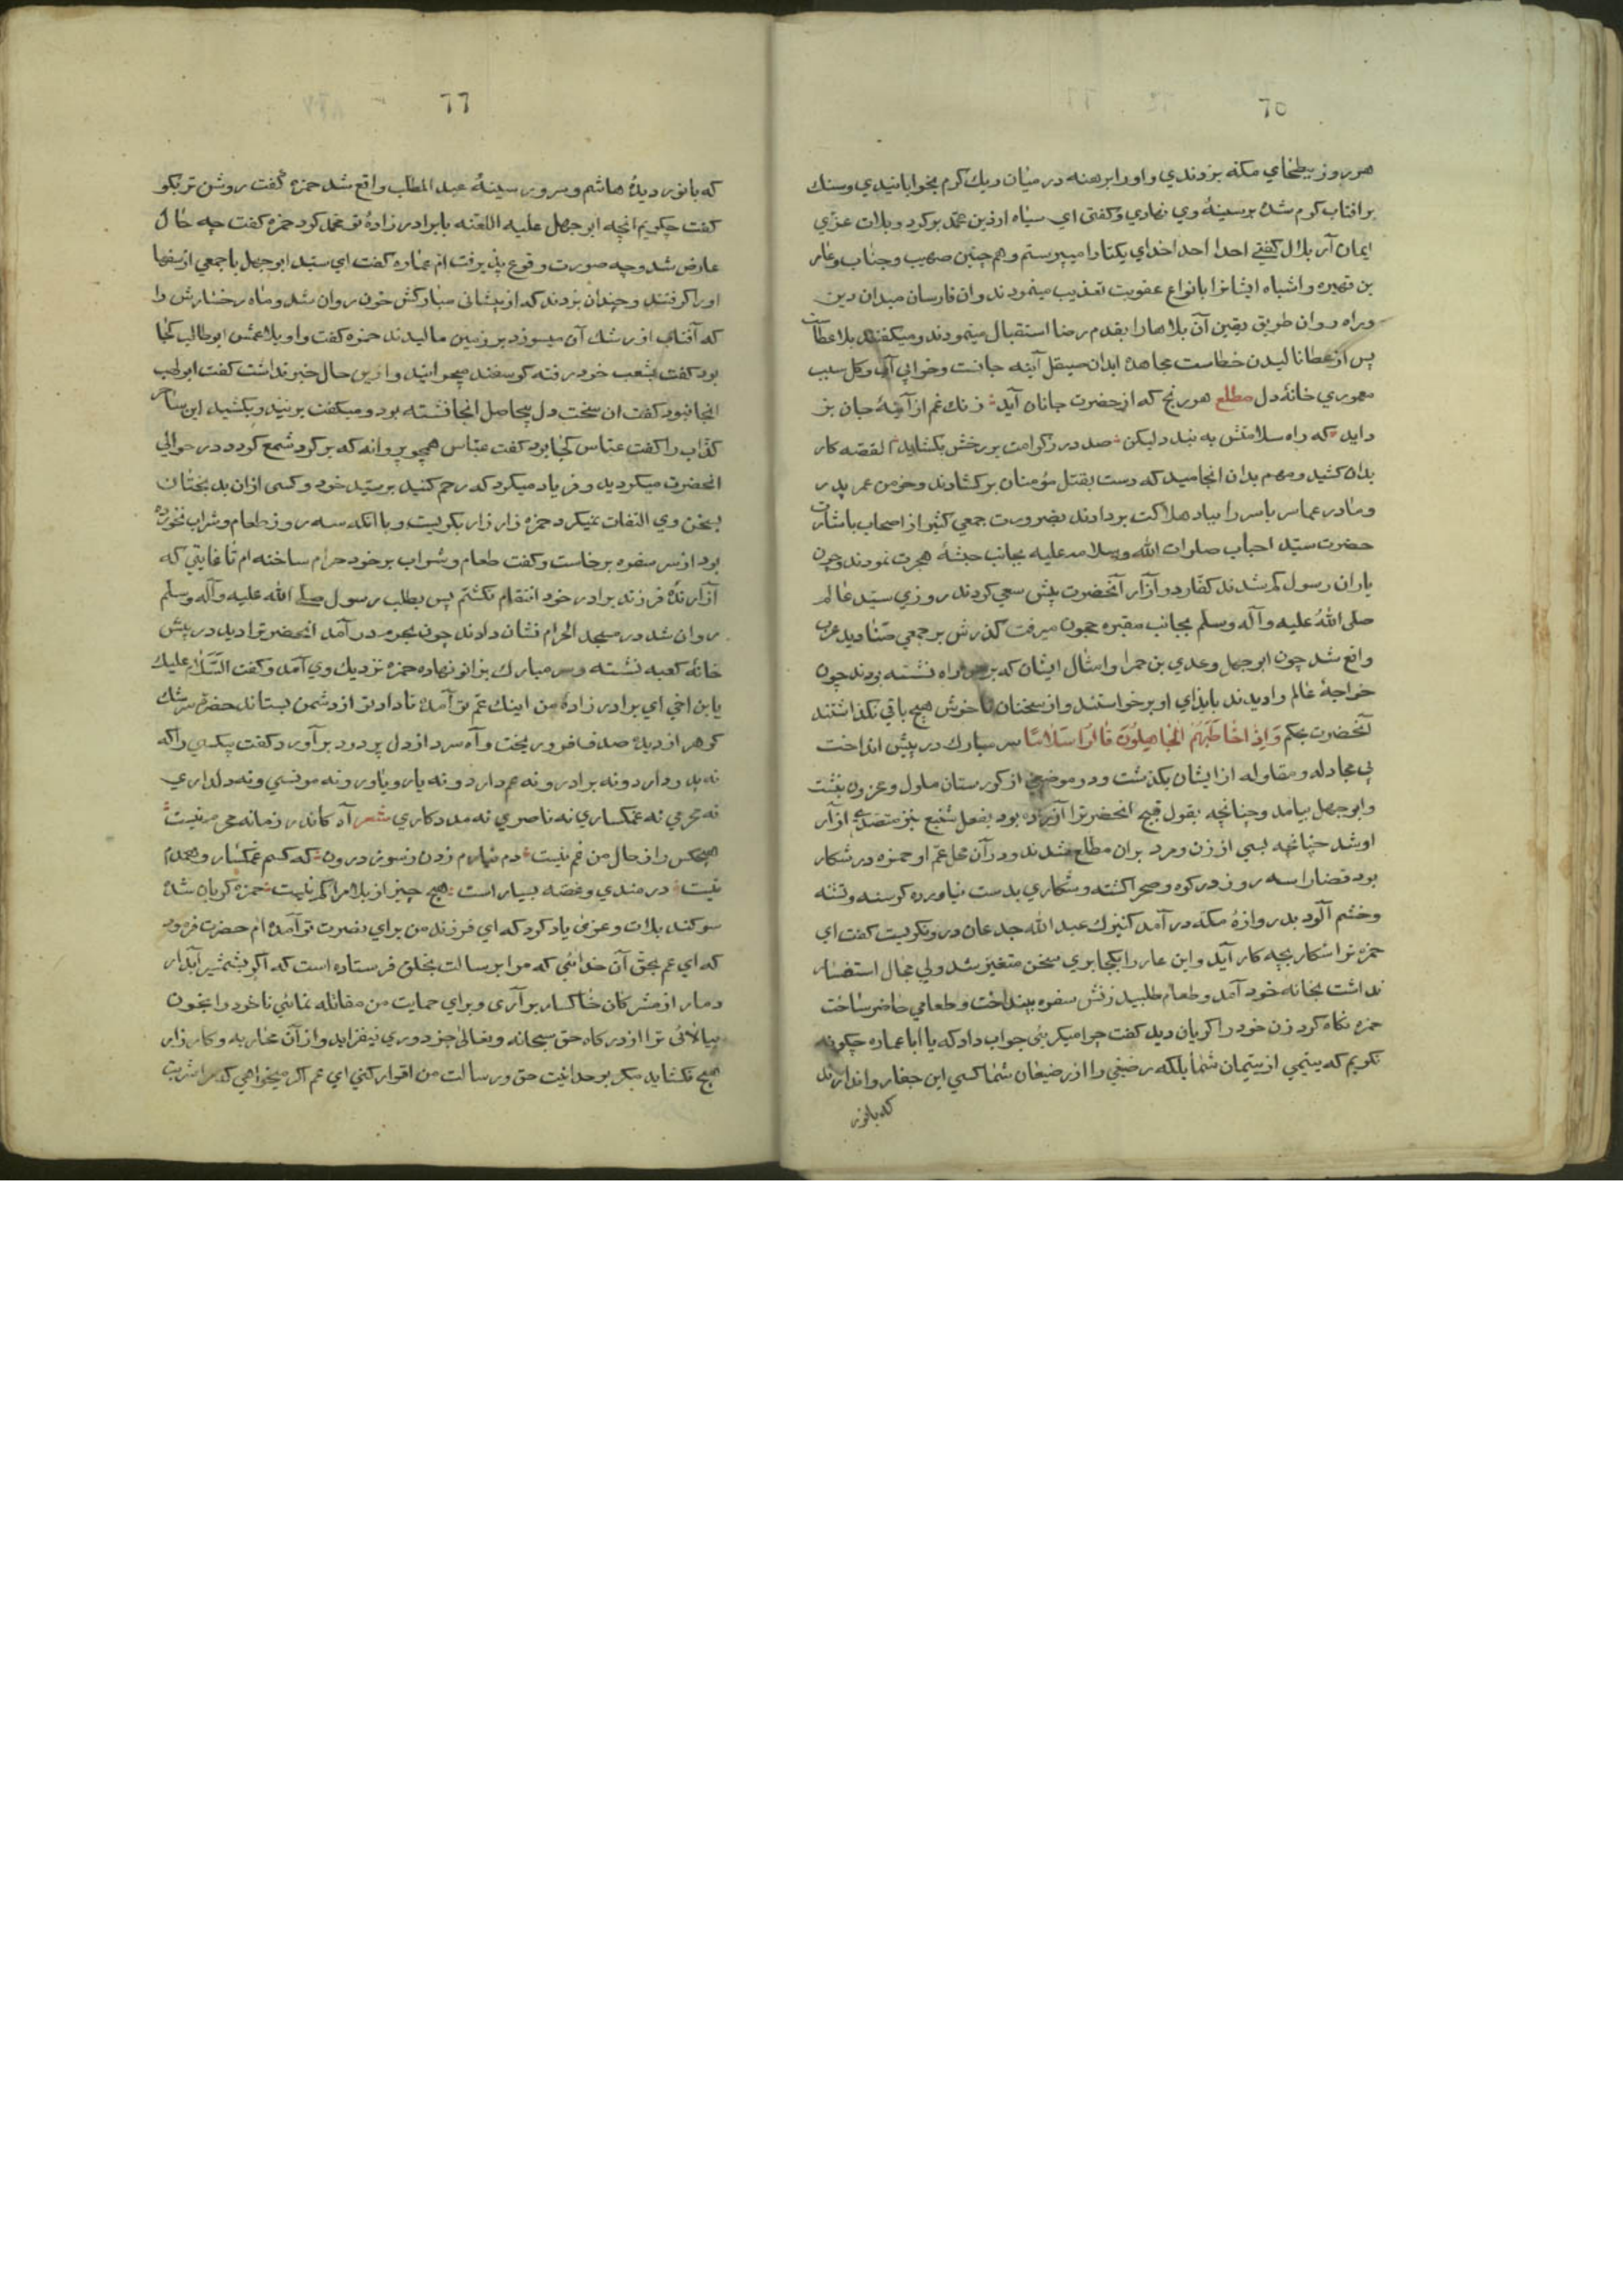 ٦٥
هر روز ببطحاي مكه بردندي واورا برهنه در ميان ريك كرم بخوابانيدي وسنك
بر افتاب كرم شده بر سينهٔ وي نهادي وكفتي اي سياه ازدين محمد بركرد وبلات عزي
ايمان آر بلال كفتي احدا احدا خداي يكتا را ميپرستم وهم چنين صهيب وجناب وعامر
بن فهيره واشباه ايشانرا بانواع عقوبت تعذيب مينمودند وان فارسان ميدان دين
وراه روان طريق يقين آن بلاها را بقدم رضا استقبال مينمودند وميكفتند بلا عطاست
پس از عطا ناليدن خطاست مجاهدهٔ ابدان صيقل آينه جانست وخرابي آب وكل سبب
معموري خانهٔ دل مطلع هر رنج كه از حضرت جانان آيد زنك غم از آينهٔ جان بز
دايد كه راه سلامتش به بندد ليكن صد در زكرامت بر رخش بكشايد القصه كار
بدان كشيد ومهم بدان انجاميد كه دست بقتل مؤمنان بر كشادند وخرمن عمر پدر
ومادر عمار ياسر را بباد هلاكت بر دادند بضرورت جمعي كثير از اصحاب باشارت
حضرت سيد احباب صلوات الله وسلامه عليه بجانب حبشه هجرت نمودند وچون
ياران رسول كم شدند كفار در آزار آنحضرت بيش سعي كردند روزي سيد عالم
صلى الله عليه وآله وسلم بجانب مقبره حجون ميرفت كذرش بر جمعي صناديد عرب
واقع شد چون ابو جهل وعدي بن حمرا وامثال ايشان كه بر سر راه نشسته بودند چون
خواجهٔ عالم را ديدند بايذاي او برخواستند واز سخنان نا خوش هيچ باقي نكذاشتند
آنحضرت بحكم وَاِذَا خَاطَبَهُمُ الْجَاهِلُونَ قَالُوا سَلَامًا سر مبارك در پيش انداخت
بي مجادله ومقاوله از ايشان بكذشت ودر موضعي از كورستان ملول ومحزون بنشست
وابو جهل بيامد وچنانچه بقول قبيح انحضرترا آزرده بود بفعل شنيع نيز متصدي ازآر
او شد چنانچه بسي از زن ومرد بران مطلع شدند ودر آن محل عم او حمزه در شكار
بود قضا را سه روز در كوه وصحرا كشته وشكاري بدست نياورده كرسنه وتشنه
وخشم آلود بدروازهٔ مكه در آمد كنيزك عبد الله جدعان درو نكريست كفت اي
حمزه ترا شكار بچه كار آيد واين عار را بكجا بري سخن متغير شد ولي مجال استفسار
نداشت بخانه خود آمد وطعام طلبيد زنش سفره بينداخت وطعامي حاضر ساخت
حمزه نكاه كرد زن خود را كريان ديد كفت چرا ميكريي جواب داد كه يا ابا عماره چكونه
نكريم كه يتيمي از يتيمان شما بلكه رضيعي را از رضيعان شما كسي اين جفا روا ندارند
كه بانور
٦٦
كه با نور ديدهٔ هاشم وسرور سينهٔ عبد المطلب واقع شد حمزه كفت روشن تر بكو
كفت چكويم انچه ابو جهل عليه اللعنه با برادر زادهٔ تو محمد كرد حمزه كفت چه حال
عارض شد وچه صورت وقوع پذيرفت ام عماره كفت اي سيد ابو جهل با جمعي از سفها
اورا كرفتند وچندان بزدند كه از پيشاني مباركش خون روان شد وماه رخسارش را
كه آفتاب از رشك آن ميسوزد بر زمين ماليدند حمزه كفت واويلا عمش ابو طالب كجا
بود كفت بشعب خود رفته كوسفند ميچرانيد وازين حال خبر نداشت كفت ابو لهب
انجا نبود كفت ان سخت دل بيحاصل انجا نشسته بود وميكفت بزنيد وبكشيد اين ساحر
كذاب را كفت عباس كجا بود كفت عباس همچو پروانه كه بر كرد شمع كردد در حوالي
انحضرت ميكرديد وفرياد ميكرد كه رحم كنيد بر سيد خود وكسي ازان بد بختان
بسخن وي التفات نميكرد حمزه زار زار بكريست وبا انكه سه روز طعام وشراب نخورده
بود از سر سفره برخاست وكفت طعام وشراب بر خود حرام ساخته ام تا غايتي كه
آزارندهٔ فرزند برادر خود انتقام نكشم پس بطلب رسول صلي الله عليه وآله وسلم
روان شد در مسجد الحرام نشان دادند چون بحرم در آمد انحضرترا ديد در پيش
خانهٔ كعبه نشسته وسر مبارك بزانو نهاده حمزه نزديك وي آمد وكفت السَّلام عليك
يا بن اخي اي برادر زادهٔ من اينك عم تو آمده تا داد تو از دشمن بستاند حضرة سرشك
كوهر از ديدهٔ صدف فرو ريخت وآه سرد از دل پر درد بر آورد وكفت بيكسي را كه
نه پدر دارد ونه برادر ونه عم دارد ونه يار وياور ونه مونسي ونه دلداري
نه محرمي نه غمكساري نه ناصري نه مددكاري شعر آه كاندر زمانه محرم نيست
هيچكس را ز حال من غم نيست دم نيارم زدن ز سوز درون كه كسم غمكسار وهمدم
نيست درمندي وغصه بسيار است هيچ چيز از بلا مرا كم نيست حمزه كريان شد
سوكند بلات وعزى ياد كرد كه اي فرزند من براي نصرت تو آمده ام حضرت فرمود
كه اي عم بحق آن خدائي كه مرا برسالت بخلق فرستاده است كه اكر بشمشير آبدار
دمار از مشركان خاكسار بر آري وبراي حمايت من مقاتله نمائي تا خود را بخون
بيالائي ترا از دركاه حق سبحانه وتعالى جز دوري نيفزايد واز آن محاربه وكار زار
هيچ نكشايد مكر بوحدانيت حق ورسالت من اقرار كني اي عم اكر ميخواهي كه مرا شربت